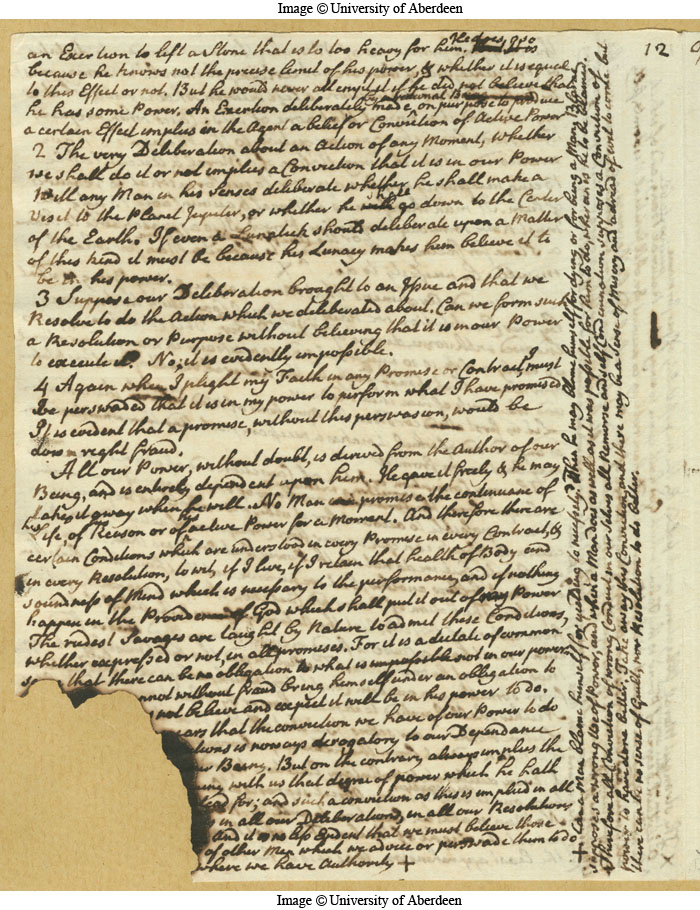 Image © University of Aberdeen
12
an Exertion to lift a Stone that is to too heavy for him. He does so
because he knows not the precise limit of his power, & whether it is equal
to this Effect or not. But he would never attempt it if he did not believe that
he has some Power. An Exertion deliberately made, on purpose to produce
a certain Effect implys in the Agent a belief or Conviction of Active Power
2 The very Deliberation about an Action of any Moment, whether
we shall do it or not implies a Conviction that it is in our Power
Will any Man in his Senses deliberate whether he shall make a
Visit to the Planet Jupiter, or whether he shall go down to the Center
of the Earth. If even a Lunatick should deliberate upon a Matter
of this kind it must be because his Lunacy makes him believe it to
be in his power.
3 Suppose our Deliberation brought to an Issue and that we
Resolve to do the Action which we deliberated about. Can we form such
a Resolution or Purpose without believing that it is in our Power
to execute it? No, it is evidently impossible.
4 Again when I plight my Faith in any Promise or Contract I must
be perswaded that it is in my power to perform what I have promised
It is evident that a promise, without this perswasion, would be
down right fraud.
All our Power, without doubt, is derived from the Author of our
Being, and is entirely dependent upon him. He gave it freely & he may
take it away when he will. No Man can promise the continuance of
his Life, of Reason or of his active Power for a Moment. And therefore there are
certain Conditions which are understood in every Promise in every Contract, &
in every Resolution, to wit, if I live, if I retain that health of Body and
soundness of Mind which is necessary to the performance, and if nothing
happen in the Providence of God which shall put it out of my Power
The rudest Savages are taught by Nature to admit these Conditions,
whether expressed or not, in all promises. For it is a dictate of common
that there can be no obligation to what is impossible not in our power
not without fraud bring himself under an obligation to
not believe and expect it will be in his power to do.
that the conviction we have of our Power to do
is noways derogatory to our Dependance
Being. But on the contrary always implys the
with us that degree of power which he hath
for; and such a conviction as this is implied in all
in all our Deliberations, in all our Resolutions
And it is no less Evident that we must believe those
of other Men which we advice or perswade them to do
where we have Authority +
+ Can a Man blame himself for yielding to necessity? Then he may blame himself for dying or for being a Man. Blame
supposes a wrong Use of Power, and when a Man does as well as it was possible for him to do, wherein is he to be blamed.
Therefore all Conviction of wrong Conduct in our selves all Remorse and self Condemnation, supposes a Conviction of
power to have done better. Take away this Conviction, and there may be a Sense of Misery and a dread of evil to come but
there can be no sense of Guilt, nor Resolution to do better.
Image © University of Aberdeen